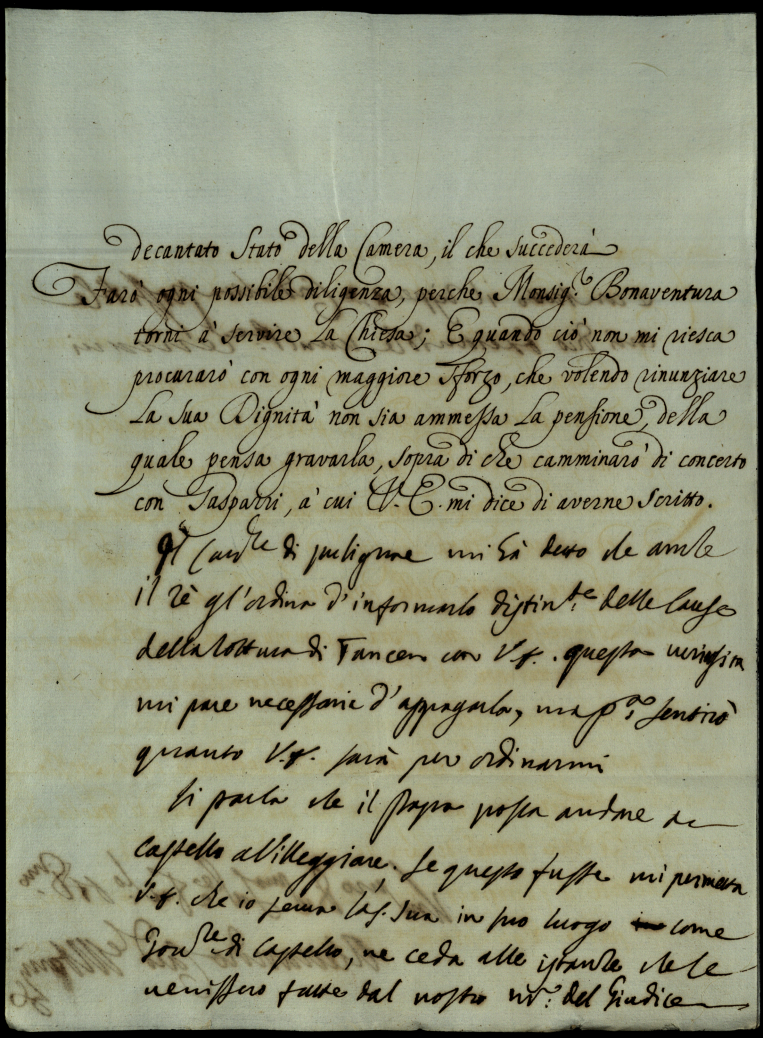 decantato Stato della Camera, il che succederà
Farò ogni possibile diligenza, perche Monsig.r Bonaventura
torni à servire La Chiesa; E quando ciò non mi riesca
procurarò con ogni maggiore sforzo, che volendo rinunziare
La sua Dignità non sia ammessa La pensione, della
quale pensa gravarla, sopra di che camminarò di concerto
con Gasparri, à cui V. E. mi dice di averne scritto.
Il Card.le di mi hà detto che anche
il rè gl'ordina d'informarlo distin.te delle Cause
della rottura di con V. E. questa
mi pare necessario d'appagarla, ma p.a sentirò
quanto V. E. sarà per ordinarmi
Si parla che il Papa possa andare a
Castello a Villeggiare. Se questo fusse mi permetta
V. E. che io serva Sua in suo luogo come
Gov.re di Castello, ne ceda alle istanze che le
venissero fatte dal nostro del Giudice